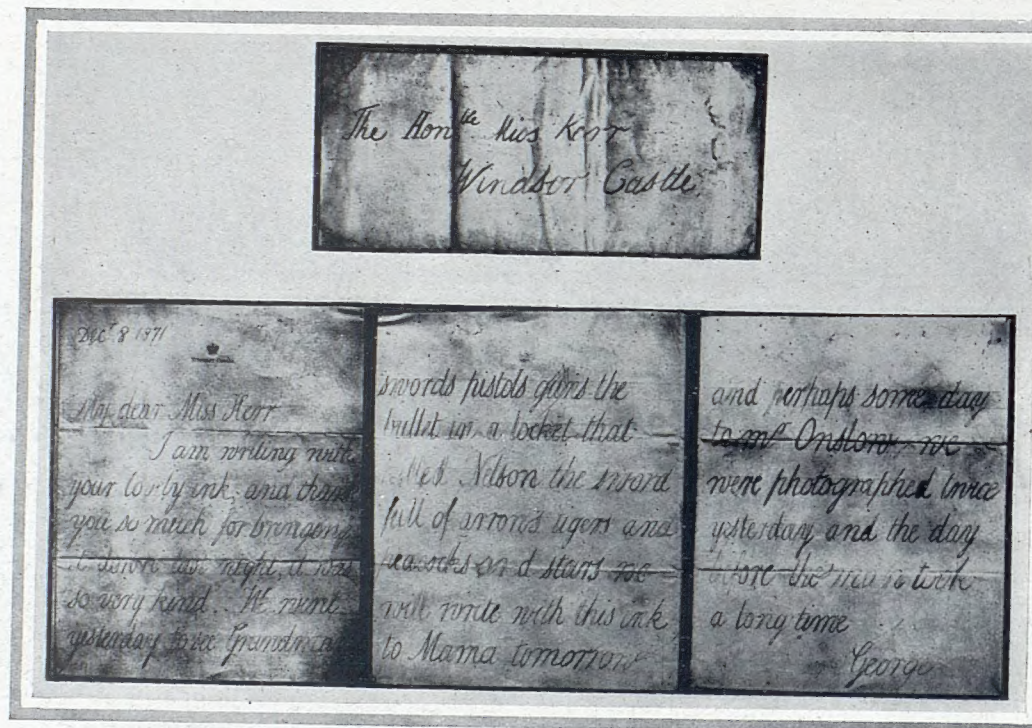 The Hon^ble Miss Kerr
Windsor Castle
Dec^r 8 1871
My dear Miss Kerr
I am writing with
your lovly ink, and thank
you so much for bringing
it down last night, it was
so very kind. We went
yesterday to see Grandmas
swords pistols guns the
bullet in a locket that
Nelson the sword
full of arrows tigers and
peacocks and stars we
will write with this ink
to Mama tomorrow
and perhaps some day
to mr Onslow we
were photographed twice
yesterday and the day
before the man took
a long time
George